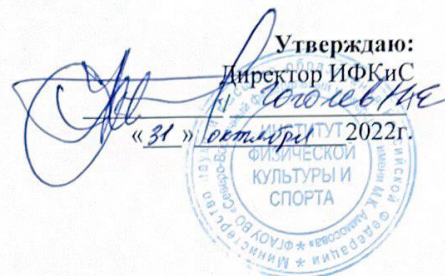 Утверждаю:
Директор ИФКиС
Гоголев Н.Е.
«31» октября 2022г.
ИНСТИТУТ
ФИЗИЧЕСКОЙ
КУЛЬТУРЫ И
СПОРТА